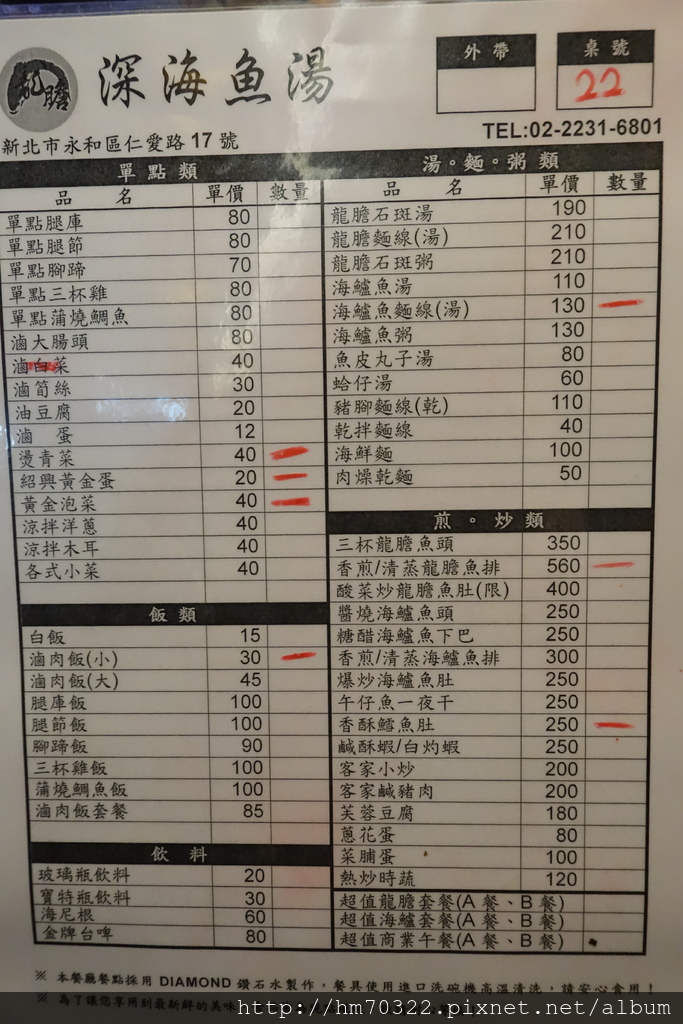 龍膽
深海魚湯
外帶
桌號
22
新北市永和區仁愛路 17 號
TEL:02-2231-6801
單點類
品 名 單價 數量
單點腿庫 80
單點腿節 80
單點腳蹄 70
單點三杯雞 80
單點蒲燒鯛魚 80
滷大腸頭 80
滷白菜 40
滷筍絲 30
油豆腐 20
滷 蛋 12
燙青菜 40
紹興黃金蛋 20
黃金泡菜 40
涼拌洋蔥 40
涼拌木耳 40
各式小菜 40
飯類
白飯 15
滷肉飯(小) 30
滷肉飯(大) 45
腿庫飯 100
腿節飯 100
腳蹄飯 90
三杯雞飯 100
蒲燒鯛魚飯 100
滷肉飯套餐 85
飲料
玻璃瓶飲料 20
寶特瓶飲料 30
海尼根 60
金牌台啤 80
湯。麵。粥類
品 名 單價 數量
龍膽石斑湯 190
龍膽麵線(湯) 210
龍膽石斑粥 210
海鱸魚湯 110
海鱸魚麵線(湯) 130
海鱸魚粥 130
魚皮丸子湯 80
蛤仔湯 60
豬腳麵線(乾) 110
乾拌麵線 40
海鮮麵 100
肉燥乾麵 50
煎。炒類
三杯龍膽魚頭 350
香煎/清蒸龍膽魚排 560
酸菜炒龍膽魚肚(限) 400
醬燒海鱸魚頭 250
糖醋海鱸魚下巴 250
香煎/清蒸海鱸魚排 300
爆炒海鱸魚肚 250
午仔魚一夜干 250
香酥鱈魚肚 250
鹹酥蝦/白灼蝦 250
客家小炒 200
客家鹹豬肉 200
芙蓉豆腐 180
蔥花蛋 80
菜脯蛋 100
熱炒時蔬 120
超值龍膽套餐(A 餐、B 餐)
超值海鱸套餐(A 餐、B 餐)
超值商業午餐(A 餐、B 餐)
※ 本餐廳餐點採用 DIAMOND 鑽石水製作，餐具使用進口洗碗機高溫清洗，請安心食用！
※ 為了讓您享用到最新鮮的美味
http://hm70322.pixnet.net/album